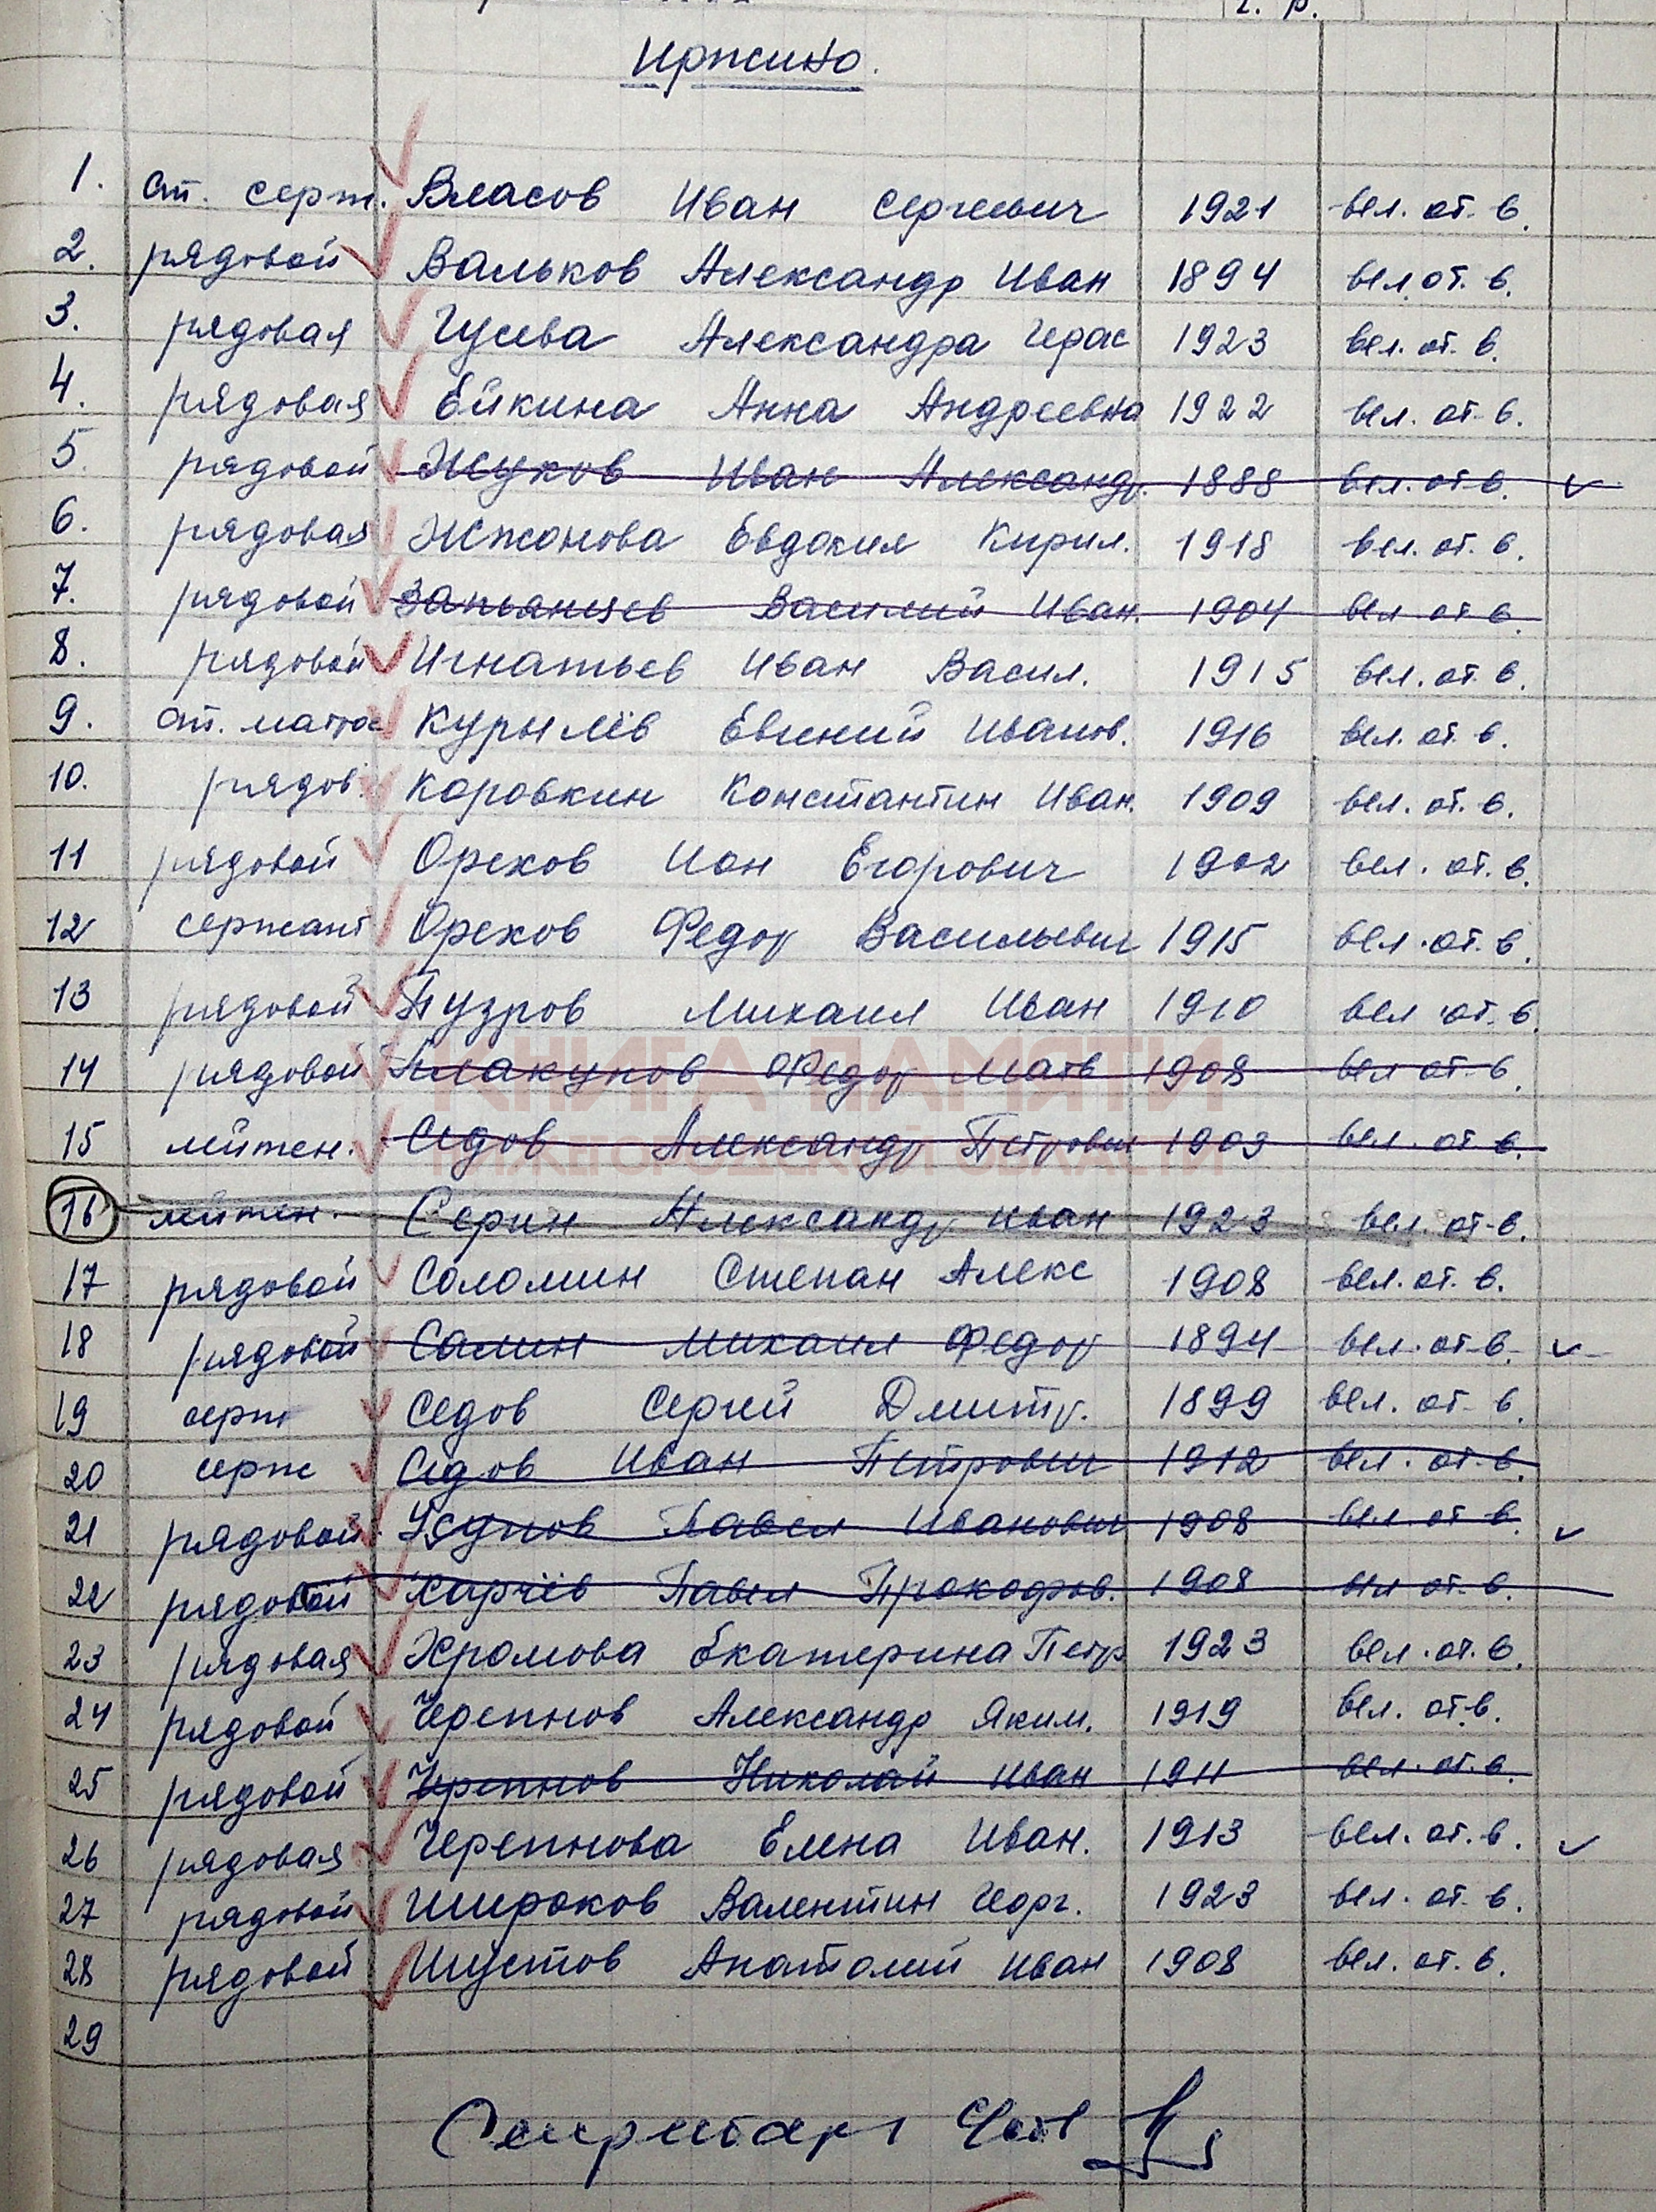 г. р.
Иржино.
1. ст. серж. Власов Иван Сергеевич 1921 вел. от. в.
2. рядовой Вальков Александр Иван 1894 вел. от. в.
3. рядовая Гусева Александра Герас 1923 вел. от. в.
4. рядовая Ейкина Анна Андреевна 1922 вел. от. в.
5. рядовой Жуков Иван Александр. 1888 вел. от. в.
6. рядовая Жжонова Евдокия Кирил. 1918 вел. от. в.
7. рядовой Запьянцев Василий Иван. 1904 вел от в.
8. рядовой Игнатьев Иван Васил. 1915 вел. от. в.
9. ст. матрос Курылёв Евгений Иванов. 1916 вел. от. в.
10. рядов. Коровкин Константин Иван. 1909 вел. от. в.
11 рядовой Орехов Ион Егорович 1902 вел. от. в.
12 сержант Орехов Федор Васильевич 1915 вел. от. в.
13 рядовой Пузров Михаил Иван 1910 вел от. в.
КНИГА ПАМЯТИ
14 рядовой Плакунов Федор Матв 1908 вел от. в.
15 лейтен. Седов Александр Петрович 1903 вел. от в.
НИЖЕГОРОДСКОЙ ОБЛАСТИ
16 лейтен. Серин Александр Иван 1923 вел. от. в.
17 рядовой Соломин Степан Алекс 1908 вел. от. в.
18 рядовой Салин Михаил Федор 1894 вел. от. в.
19 серж Седов Сергей Дмитр. 1899 вел. от. в.
20 серж Седов Иван Петрович 1912 вел. от. в.
21 рядовой Павел Иванович 1908 вел. от в.
22 рядовой Харчёв Павел Прокофов. 1908 вел от. в.
23 рядовая Хромова Екатерина Петр 1923 вел. от. в.
24 рядовой Черепнов Александр Яким. 1919 вел. от. в.
25 рядовой Черепнов Николай Иван 1911 вел. от. в.
26 рядовая Черепнова Елена Иван. 1913 вел. от. в.
27 рядовой Широков Валентин Георг. 1923 вел. от. в.
28 рядовой Шустов Анатолий Иван 1908 вел. от. в.
29
Секретарь